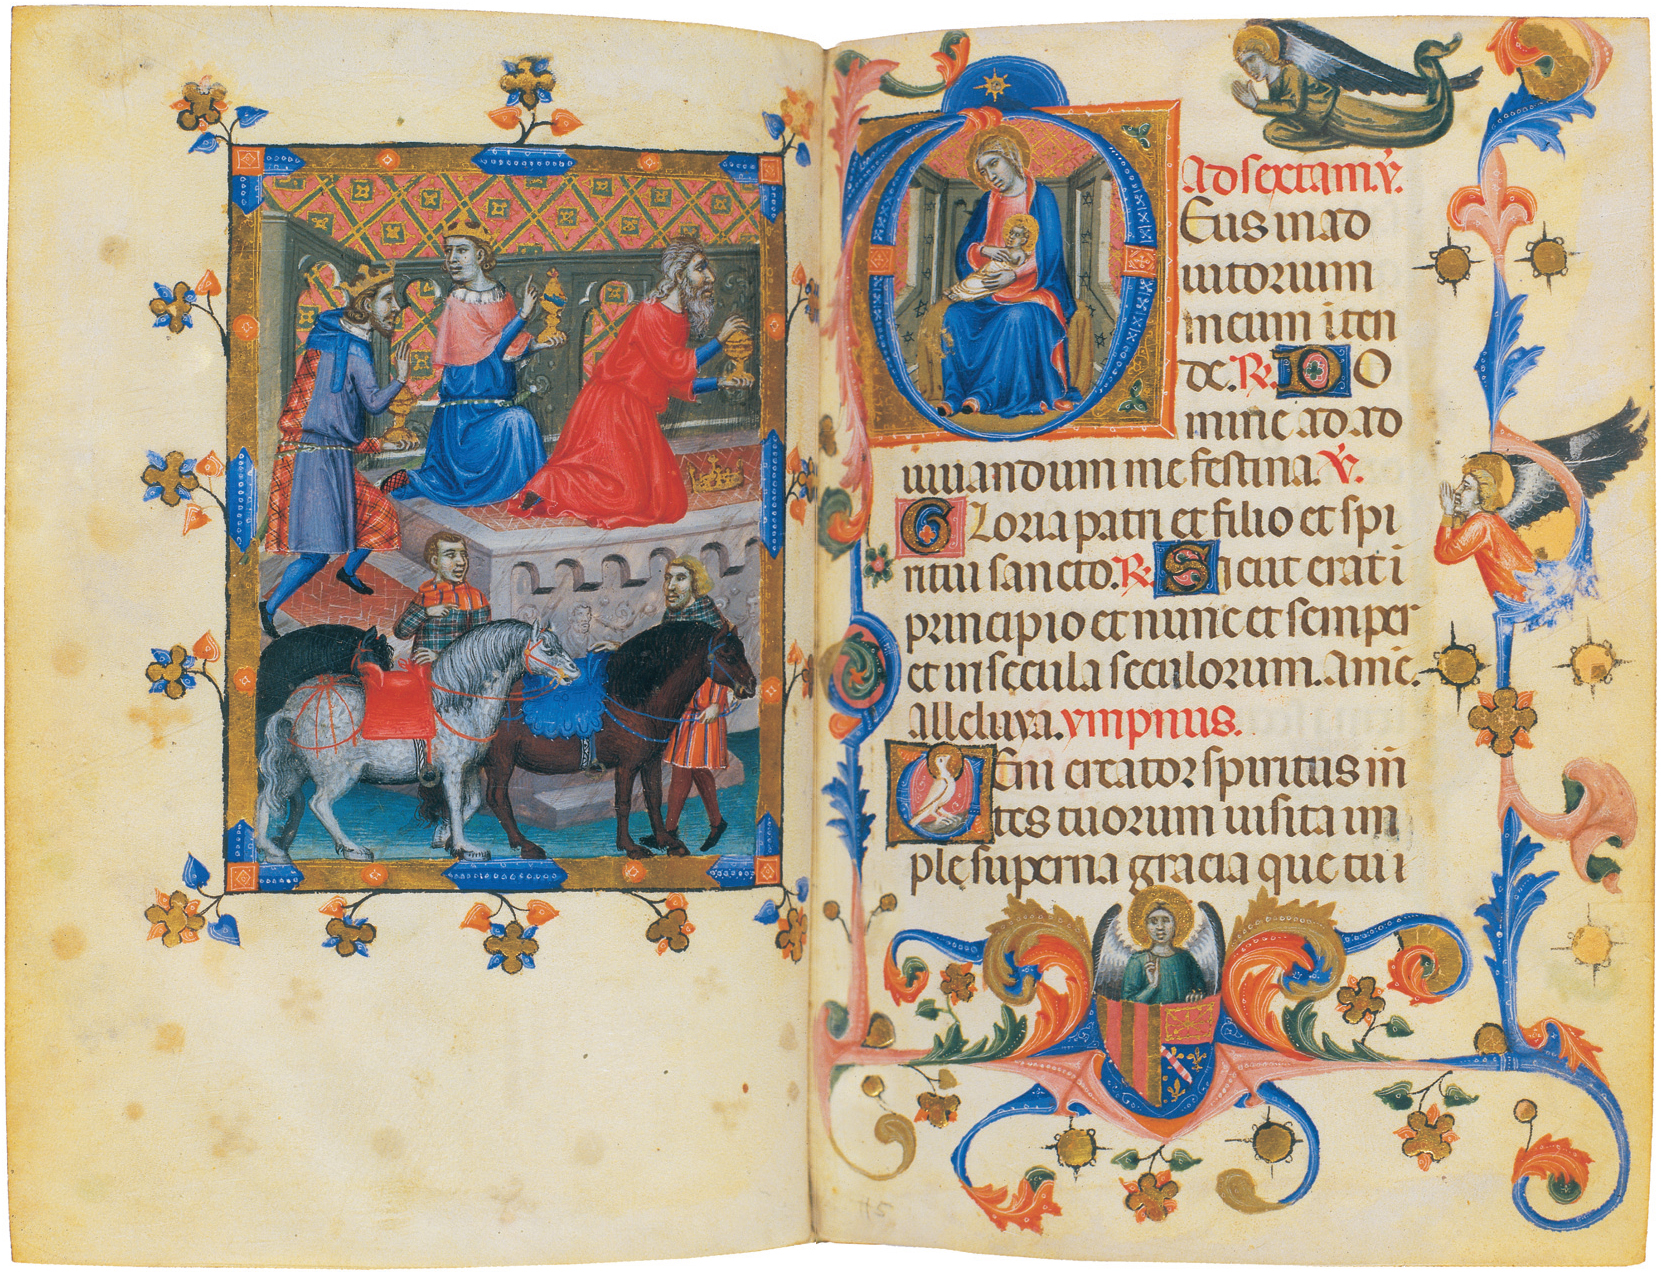 Ad sextam. ℣.
Eus in ad
iutorium
meum inten
de. ℟. DO
mine ad ad
iuuandum me festina. ℣.
Gloria patri et filio et spi
ritui sancto. ℟. Sicut erat i
principio et nunc et semper
et in secula seculorum. Amē.
Alleluya. ympnus.
Veni creator spiritus mē
tes tuorum uisita im
ple superna gracia que tu i
115